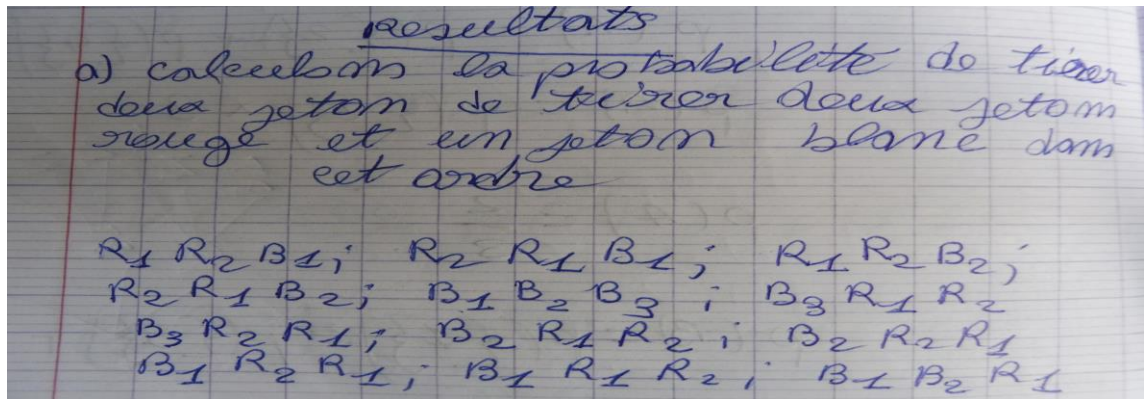 resultats
a) calculons la probabilitte de tierer
deux jetom de tu'rer deux jetom
rouge et un jetom blanc dam
cet ordre
R1 R2 B1; R2 R1 B1; R1 R2 B2;
R2 R1 B2; B1 B2 B3; B3 R1 R2
B3 R2 R1; B2 R1 R2; B2 R2 R1
B1 R2 R1; B1 R1 R2; B1 B2 R1